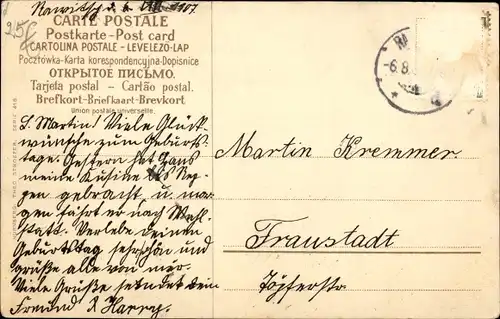 Rawitsch d. 6. VIII 1907
CARTE POSTALE
Postkarte - Post card
CARTOLINA POSTALE - LEVELEZO-LAP
Pocztówka-Karta korespondencyjna-Dopisnice
ОТКРЫТОЕ ПИСЬМО.
Tarjeta postal - Cartão postal.
Brefkort-Briefkaart-Brevkort.
Union postale universelle.
L. Martin! Viele Glück-
wünsche zum Geburts-
tage. Gestern hat Hans
meine Kusine
gebracht, u. mor-
gen fährt er nach Wahl-
statt. Verlebe deinen
Geburtstag sehr schön und
grüße alle von mir.
Viele Grüße sendet dein
Freund Harry.
Martin Kremmer.
Fraustadt
Töpferstr.
6.8.